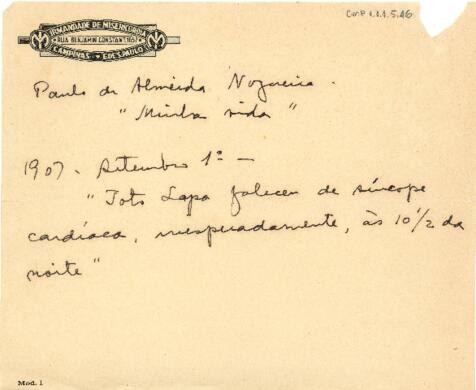 ConP 1.1.1.5.46
IRMANDADE DE MISERICORDIA
RUA BENJAMIN CONSTANT, 1657
CAMPINAS E. DE S. PAULO
Paulo de Almeida Nogueira.
"Minha vida"
1907. Setembro 1º —
"Totó Lapa faleceu de síncope
cardíaca, inesperadamente, às 10 1/2 da
noite"
Mod. 1